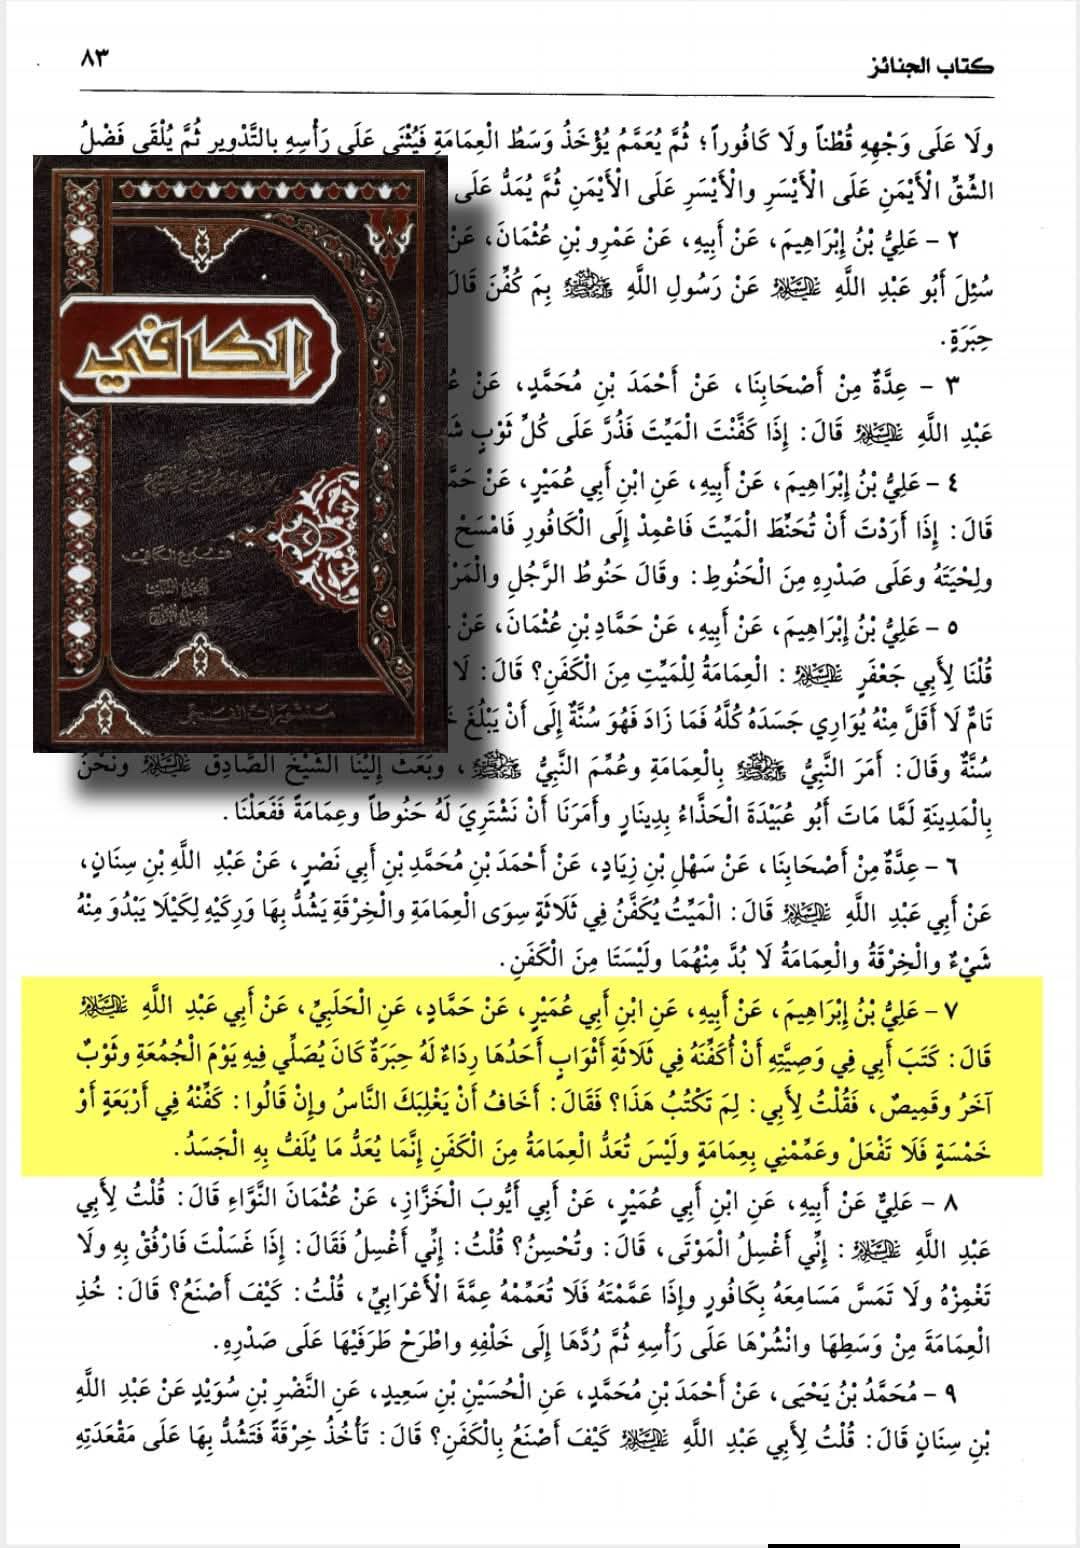 كتاب الجنائز ٨٣
ولَا عَلَى وَجْهِهِ قُطْناً ولَا كَافُوراً؛ ثُمَّ يُعَمَّمُ يُؤْخَذُ وَسَطُ الْعِمَامَةِ فَيُثْنَى عَلَى رَأْسِهِ بِالتَّدْوِيرِ ثُمَّ يُلْقَى فَضْلُ
الشِّقِّ الْأَيْمَنِ عَلَى الْأَيْسَرِ والْأَيْسَرِ عَلَى الْأَيْمَنِ ثُمَّ يُمَدُّ عَلَى
٢ - عَلِيُّ بْنُ إِبْرَاهِيمَ، عَنْ أَبِيهِ، عَنْ عَمْرِو بْنِ عُثْمَانَ، عَنْ
سُئِلَ أَبُو عَبْدِ اللَّهِ عَلَيْهِ السَّلَام عَنْ رَسُولِ اللَّهِ ﷺ بِمَ كُفِّنَ قَالَ
حِبَرَةٍ.
٣ - عِدَّةٌ مِنْ أَصْحَابِنَا، عَنْ أَحْمَدَ بْنِ مُحَمَّدٍ، عَنْ
عَبْدِ اللَّهِ عَلَيْهِ السَّلَام قَالَ: إِذَا كَفَّنْتَ الْمَيِّتَ فَذُرَّ عَلَى كُلِّ ثَوْبٍ
٤ - عَلِيُّ بْنُ إِبْرَاهِيمَ، عَنْ أَبِيهِ، عَنِ ابْنِ أَبِي عُمَيْرٍ، عَنْ
قَالَ: إِذَا أَرَدْتَ أَنْ تُحَنِّطَ الْمَيِّتَ فَاعْمِدْ إِلَى الْكَافُورِ فَامْسَحْ
ولِحْيَتَهُ وعَلَى صَدْرِهِ مِنَ الْحَنُوطِ: وقَالَ حَنُوطُ الرَّجُلِ
٥ - عَلِيُّ بْنُ إِبْرَاهِيمَ، عَنْ أَبِيهِ، عَنْ حَمَّادِ بْنِ عُثْمَانَ، عَنْ
قُلْنَا لِأَبِي جَعْفَرٍ عَلَيْهِ السَّلَام: الْعِمَامَةُ لِلْمَيِّتِ مِنَ الْكَفَنِ؟ قَالَ: لَا
تَامٌّ لَا أَقَلَّ مِنْهُ يُوَارِي جَسَدَهُ كُلَّهُ فَمَا زَادَ فَهُوَ سُنَّةٌ إِلَى أَنْ يَبْلُغَ
سُنَّةٌ وقَالَ: أَمَرَ النَّبِيُّ ﷺ بِالْعِمَامَةِ وعُمِّمَ النَّبِيُّ ﷺ، وبَعَثَ إِلَيْنَا الشَّيْخُ الصَّادِقُ عَلَيْهِ السَّلَام ونَحْنُ
بِالْمَدِينَةِ لَمَّا مَاتَ أَبُو عُبَيْدَةَ الْحَذَّاءُ بِدِينَارٍ وأَمَرَنَا أَنْ نَشْتَرِيَ لَهُ حَنُوطاً وعِمَامَةً فَفَعَلْنَا.
٦ - عِدَّةٌ مِنْ أَصْحَابِنَا، عَنْ سَهْلِ بْنِ زِيَادٍ، عَنْ أَحْمَدَ بْنِ مُحَمَّدِ بْنِ أَبِي نَصْرٍ، عَنْ عَبْدِ اللَّهِ بْنِ سِنَانٍ،
عَنْ أَبِي عَبْدِ اللَّهِ عَلَيْهِ السَّلَام قَالَ: الْمَيِّتُ يُكَفَّنُ فِي ثَلَاثَةٍ سِوَى الْعِمَامَةِ والْخِرْقَةِ يَشُدُّ بِهَا وَرِكَيْهِ لِكَيْلَا يَبْدُوَ مِنْهُ
شَيْءٌ والْخِرْقَةُ والْعِمَامَةُ لَا بُدَّ مِنْهُمَا ولَيْسَتَا مِنَ الْكَفَنِ.
٧ - عَلِيُّ بْنُ إِبْرَاهِيمَ، عَنْ أَبِيهِ، عَنِ ابْنِ أَبِي عُمَيْرٍ، عَنْ حَمَّادٍ، عَنِ الْحَلَبِيِّ، عَنْ أَبِي عَبْدِ اللَّهِ عَلَيْهِ السَّلَام
قَالَ: كَتَبَ أَبِي فِي وَصِيَّتِهِ أَنْ أُكَفِّنَهُ فِي ثَلَاثَةِ أَثْوَابٍ أَحَدُهَا رِدَاءٌ لَهُ حِبَرَةٌ كَانَ يُصَلِّي فِيهِ يَوْمَ الْجُمُعَةِ وثَوْبٌ
آخَرُ وقَمِيصٌ، فَقُلْتُ لِأَبِي: لِمَ تَكْتُبُ هَذَا؟ فَقَالَ: أَخَافُ أَنْ يَغْلِبَكَ النَّاسُ وإِنْ قَالُوا: كَفِّنْهُ فِي أَرْبَعَةٍ أَوْ
خَمْسَةٍ فَلَا تَفْعَلْ وعَمِّمْنِي بِعِمَامَةٍ ولَيْسَ تُعَدُّ الْعِمَامَةُ مِنَ الْكَفَنِ إِنَّمَا يُعَدُّ مَا يُلَفُّ بِهِ الْجَسَدُ.
٨ - عَلِيٌّ عَنْ أَبِيهِ، عَنِ ابْنِ أَبِي عُمَيْرٍ، عَنْ أَبِي أَيُّوبَ الْخَزَّازِ، عَنْ عُثْمَانَ النَّوَّاءِ قَالَ: قُلْتُ لِأَبِي
عَبْدِ اللَّهِ عَلَيْهِ السَّلَام: إِنِّي أَغْسِلُ الْمَوْتَى، قَالَ: وتُحْسِنُ؟ قُلْتُ: إِنِّي أَغْسِلُ فَقَالَ: إِذَا غَسَلْتَ فَارْفُقْ بِهِ ولَا
تَغْمِزْهُ ولَا تَمَسَّ مَسَامِعَهُ بِكَافُورٍ وإِذَا عَمَّمْتَهُ فَلَا تُعَمِّمْهُ عِمَّةَ الْأَعْرَابِيِّ، قُلْتُ: كَيْفَ أَصْنَعُ؟ قَالَ: خُذِ
الْعِمَامَةَ مِنْ وَسَطِهَا وانْشُرْهَا عَلَى رَأْسِهِ ثُمَّ رُدَّهَا إِلَى خَلْفِهِ واطْرَحْ طَرَفَيْهَا عَلَى صَدْرِهِ.
٩ - مُحَمَّدُ بْنُ يَحْيَى، عَنْ أَحْمَدَ بْنِ مُحَمَّدٍ، عَنِ الْحُسَيْنِ بْنِ سَعِيدٍ، عَنِ النَّضْرِ بْنِ سُوَيْدٍ عَنْ عَبْدِ اللَّهِ
بْنِ سِنَانٍ قَالَ: قُلْتُ لِأَبِي عَبْدِ اللَّهِ عَلَيْهِ السَّلَام كَيْفَ أَصْنَعُ بِالْكَفَنِ؟ قَالَ: تَأْخُذُ خِرْقَةً فَتَشُدُّ بِهَا عَلَى مَقْعَدَتِهِ
الكافي
فروع الكافي
منشورات الفجر